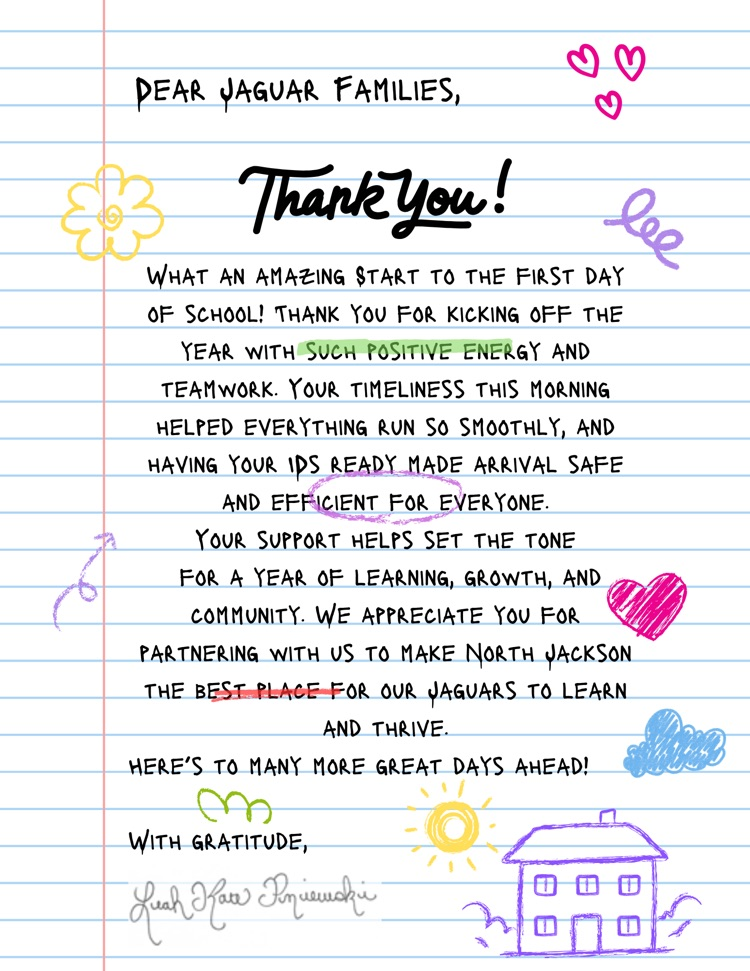 Dear Jaguar Families,
Thank You!
What an amazing start to the first day
of school! Thank you for kicking off the
year with such positive energy and
teamwork. Your timeliness this morning
helped everything run so smoothly, and
having your IDs ready made arrival safe
and efficient for everyone.
Your support helps set the tone
for a year of learning, growth, and
community. We appreciate you for
partnering with us to make North Jackson
the best place for our Jaguars to learn
and thrive.
Here's to many more great days ahead!
With gratitude,
Leah Kate